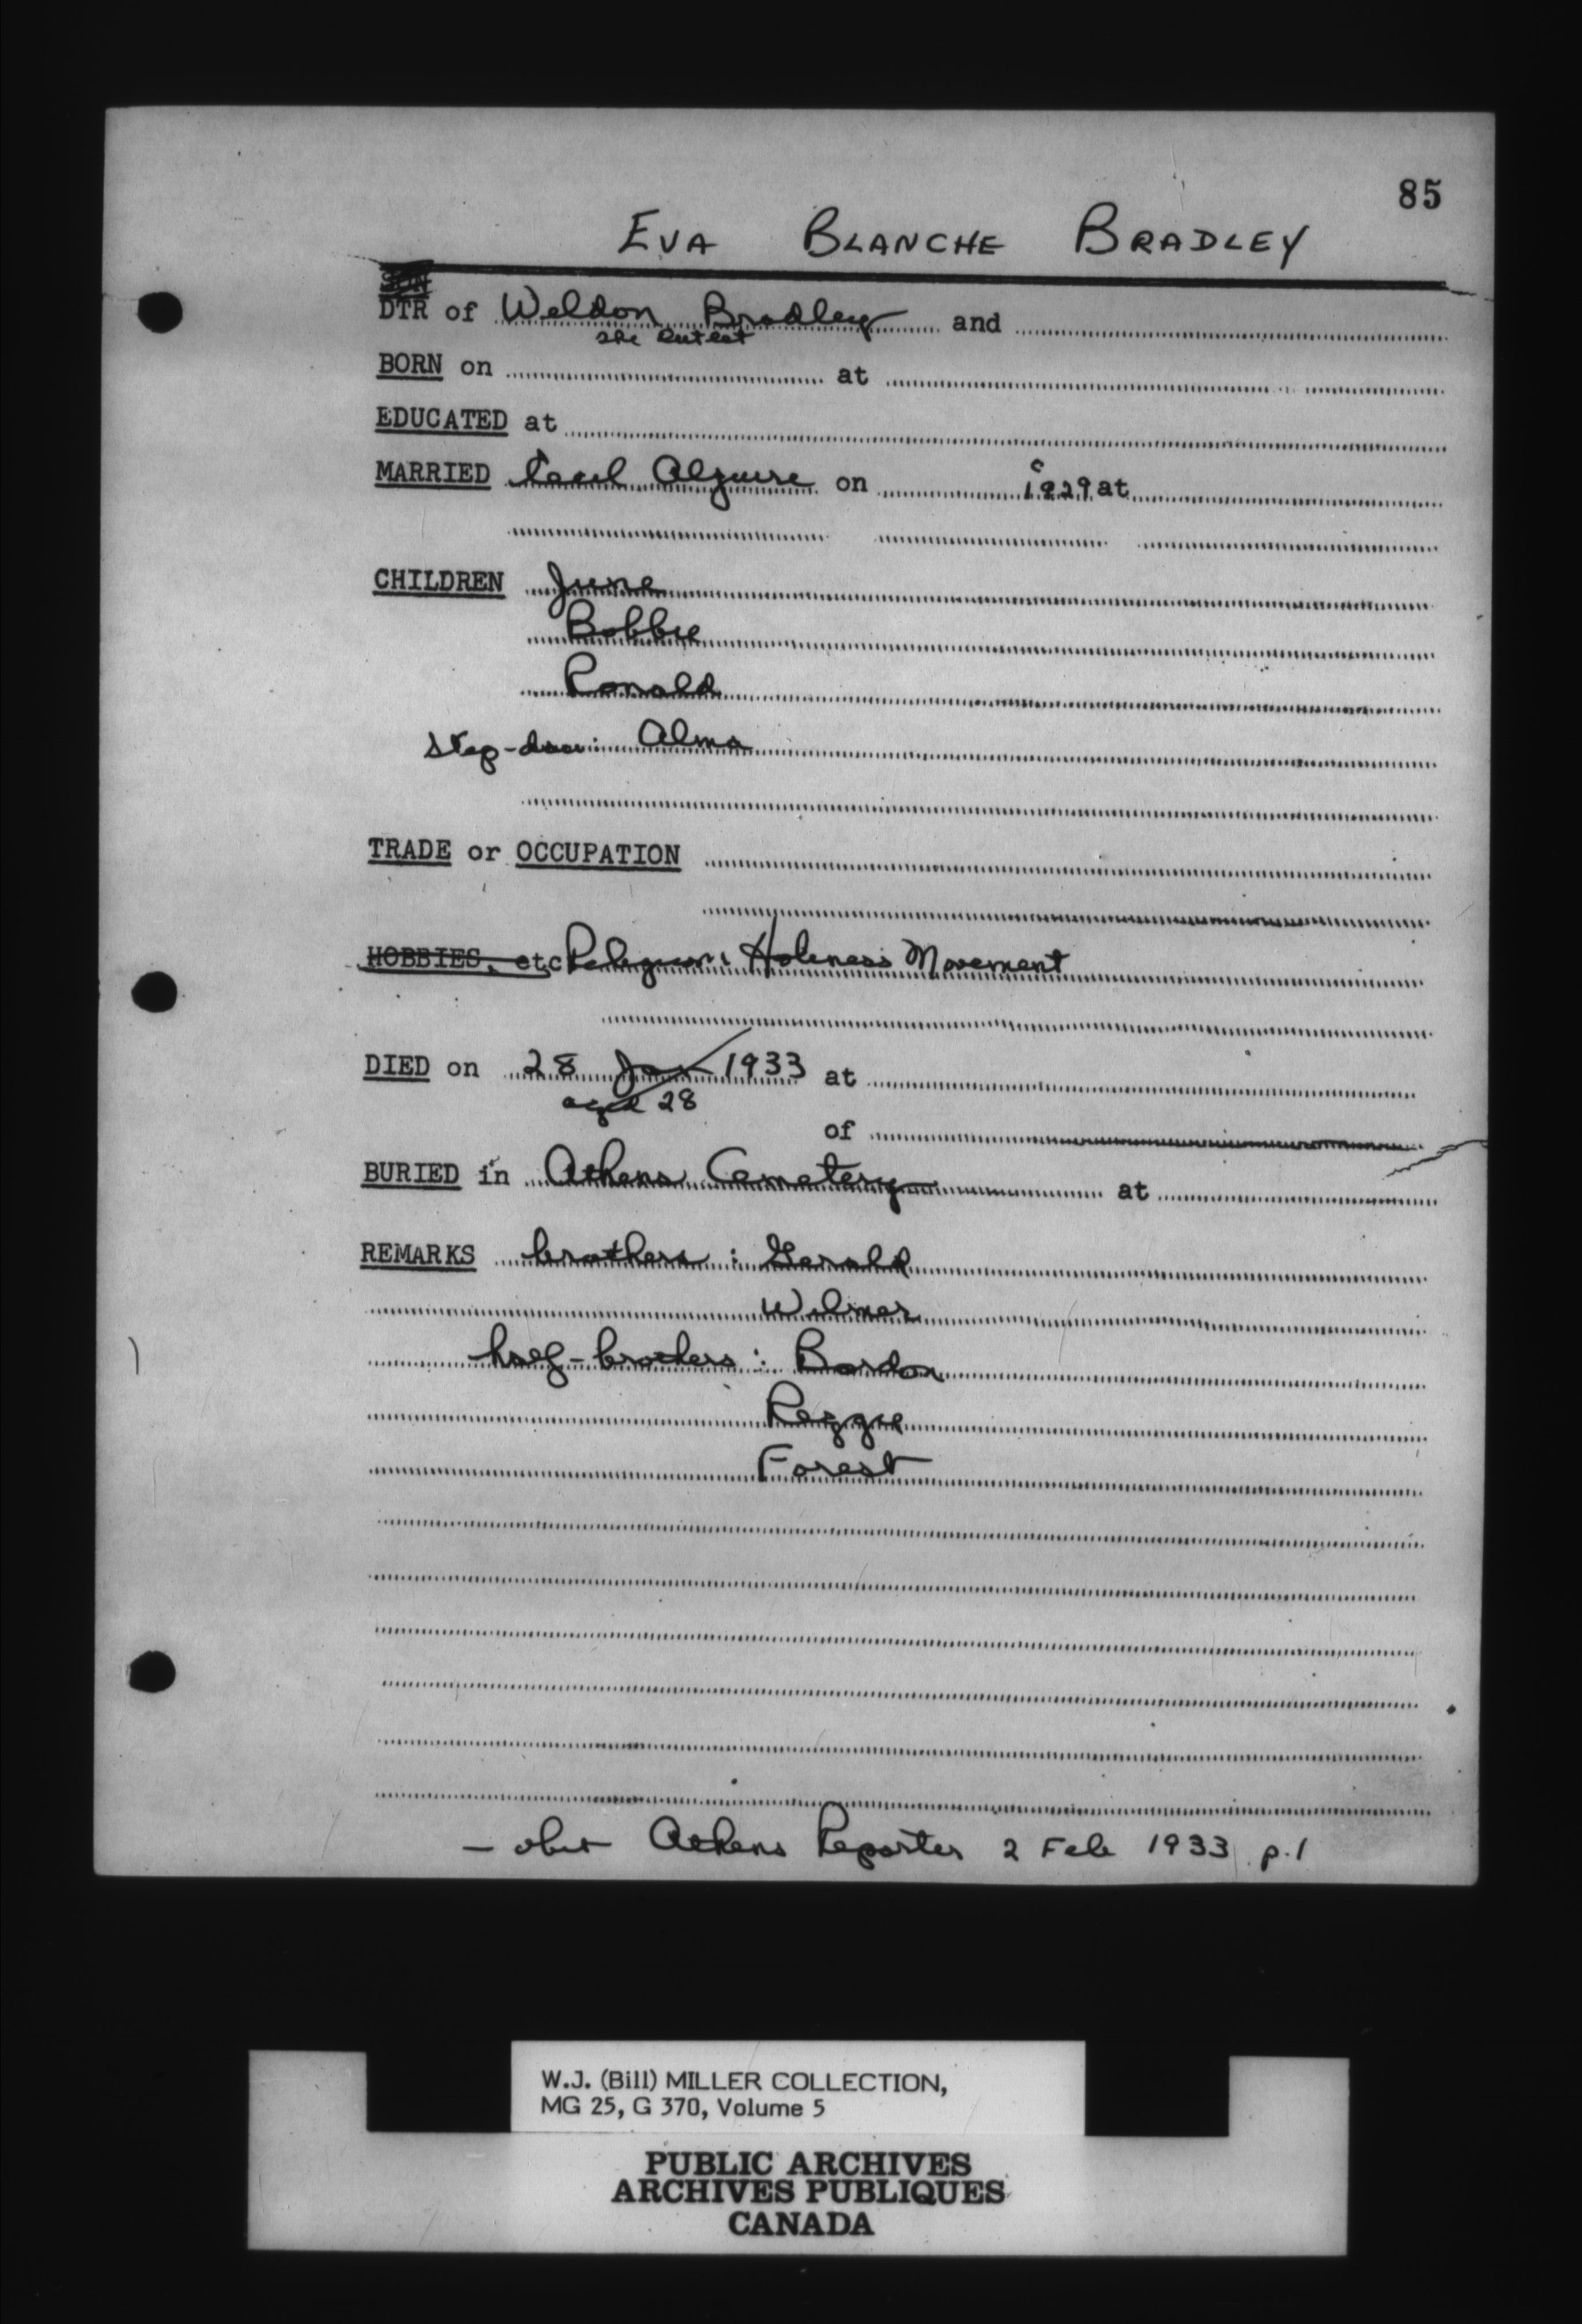 85
EVA BLANCHE BRADLEY
SON
DTR of Weldon Bradley and
The Outlet
BORN on at
EDUCATED at
MARRIED Cecil Alguire on c 1929 at
CHILDREN June
Bobbie
Ronald
Step-dau: Alma
TRADE or OCCUPATION
HOBBIES, etc Religion: Holiness Movement
DIED on 28 Jan 1933 at
aged 28
of
BURIED in Athens Cemetery at
REMARKS brothers: Gerald
Wilmer
half-brothers: Bordon
Reggie
Forest
- obit Athens Reporter 2 Feb 1933 p.1
W.J. (Bill) MILLER COLLECTION,
MG 25, G 370, Volume 5
PUBLIC ARCHIVES
ARCHIVES PUBLIQUES
CANADA